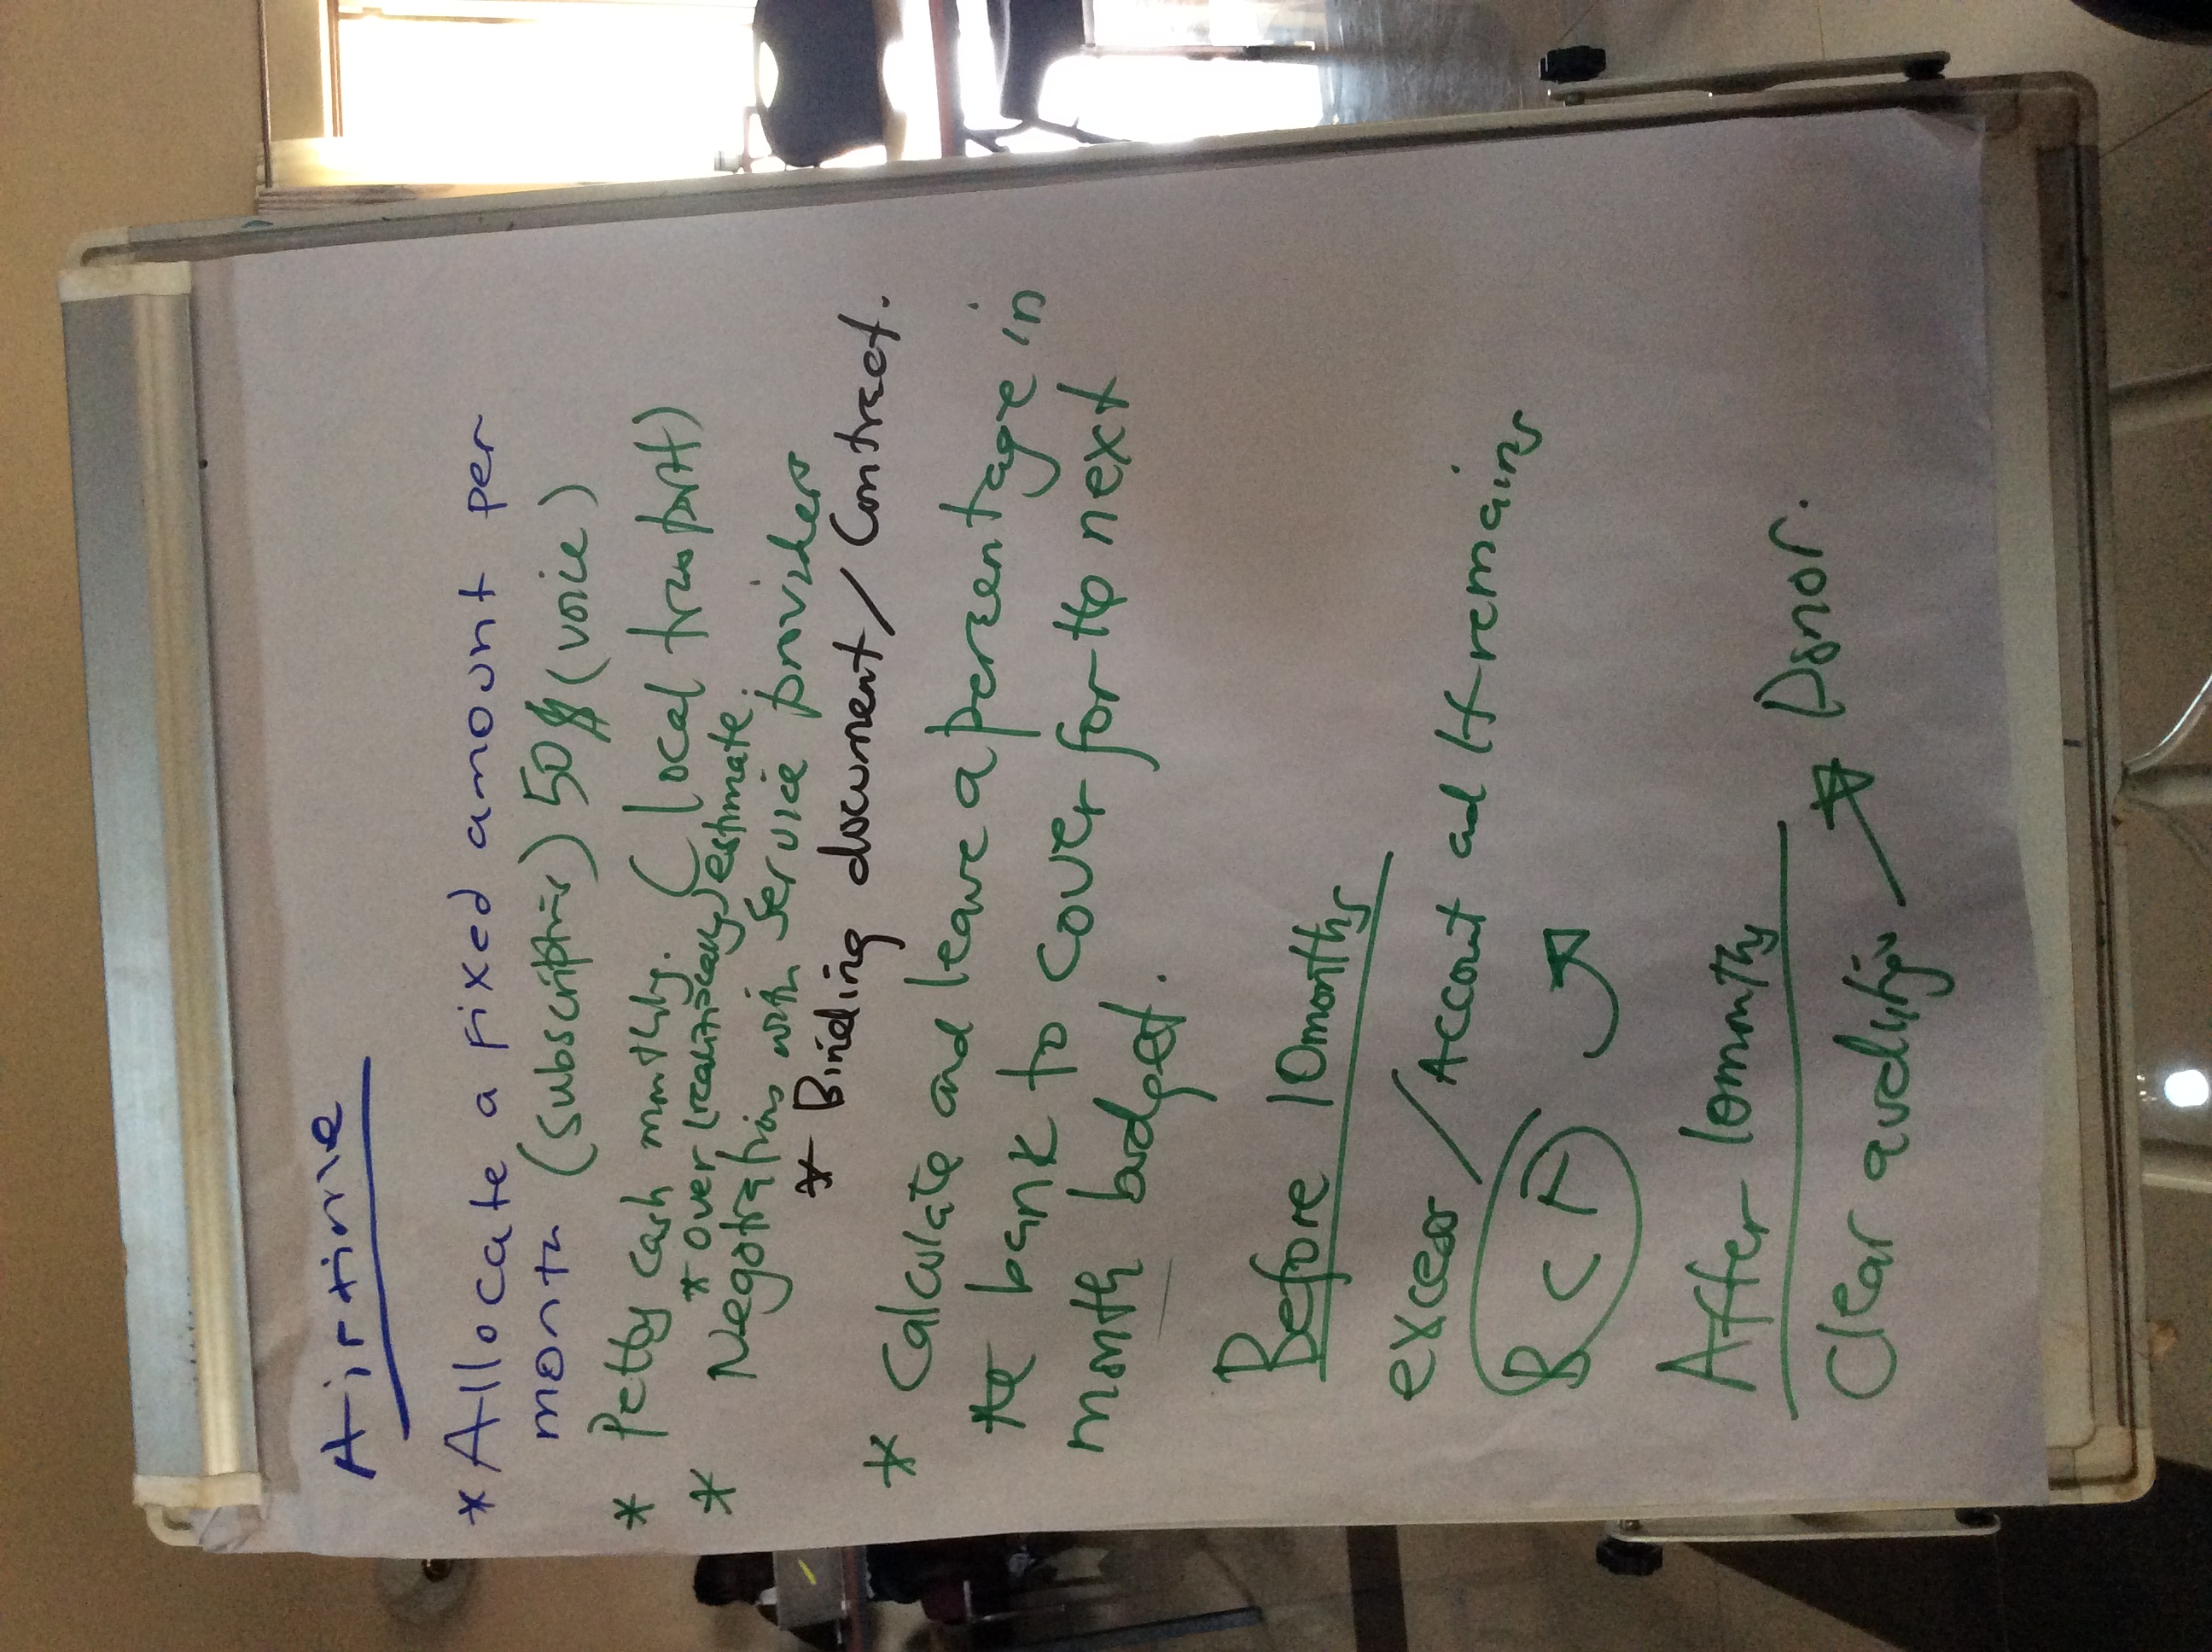 Airtime
* Allocate a fixed amount per
month (subscription) 50$ (voice)
* Petty cash monthly. (local transport)
* Over (realistically) estimate.
* Negotiations with Service providers
* Binding document / Contract.
* Calculate and leave a percentage in
the bank to cover for the next
month budget.
Before 10months
excess / Account and If remains
B C F
After 10months
Clear → Donor.